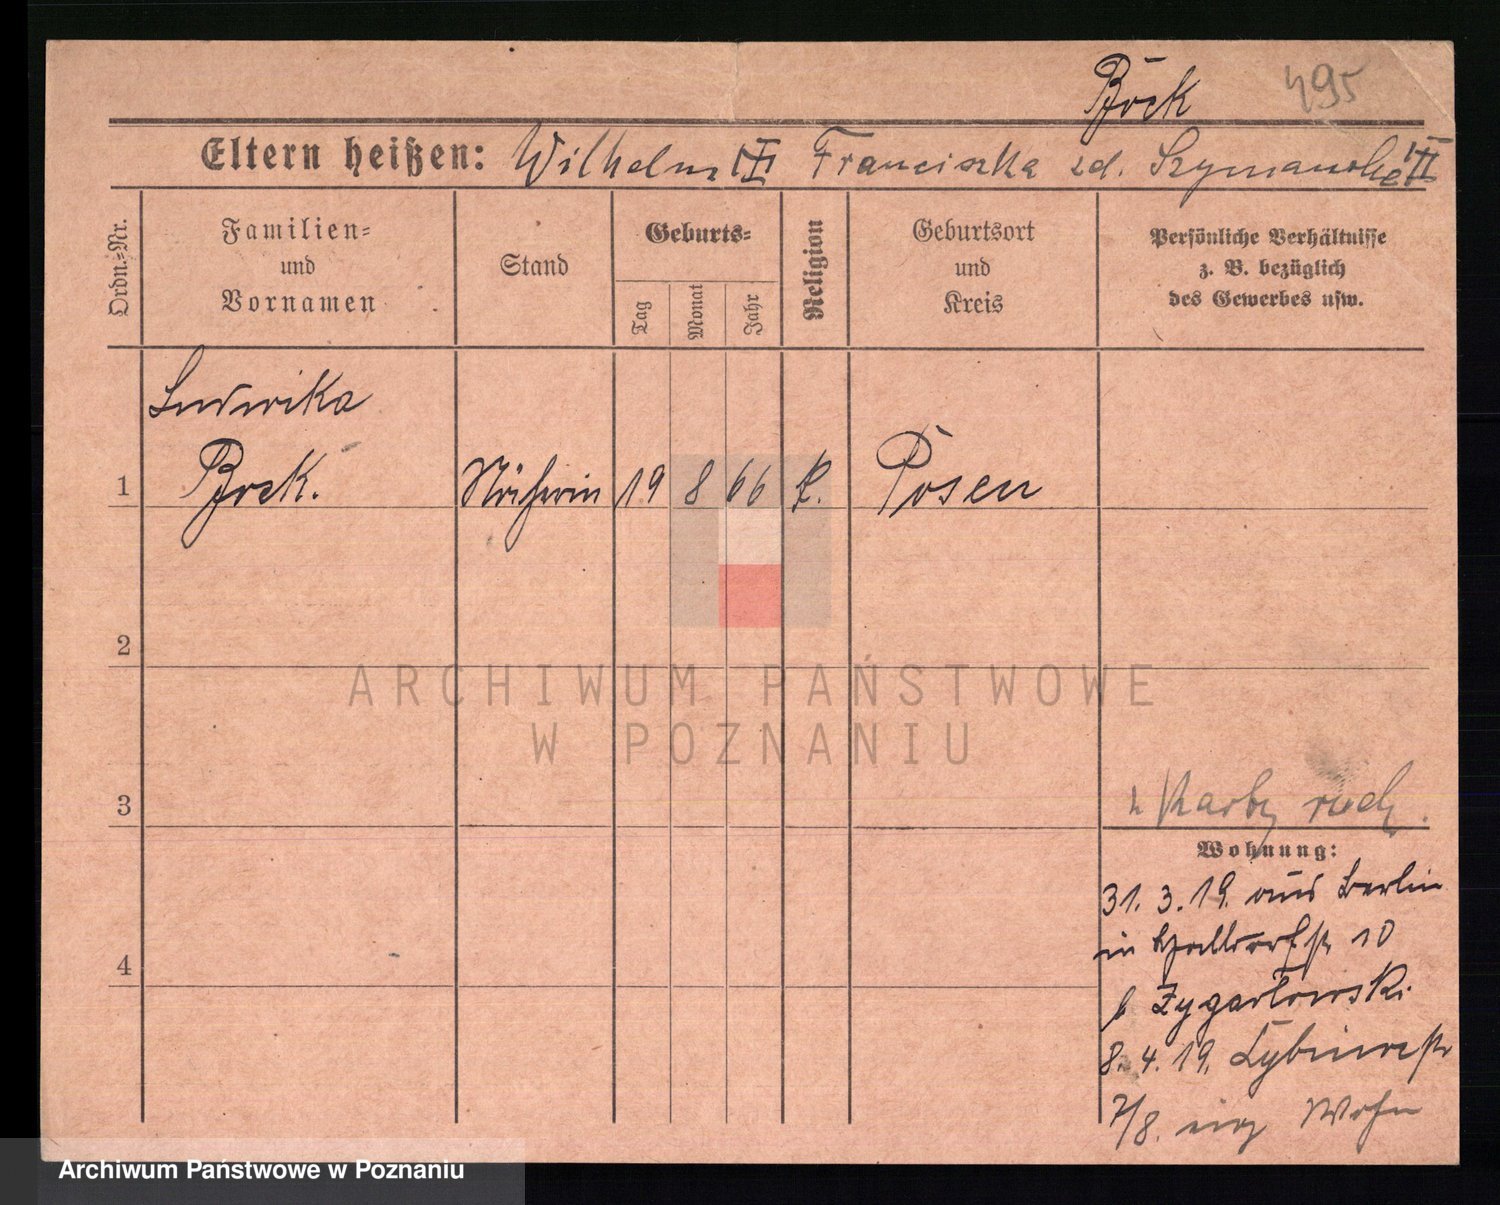 Böck 495
Eltern heißen: Wilhelm Franciszka zd. Szymanska
Ordn.=Nr.
Familien=
und
Vornamen
Stand
Geburts=
Tag
Monat
Jahr
Religion
Geburtsort
und
Kreis
Persönliche Verhältnisse
z. B. bezüglich
des Gewerbes usw.
Ludwika
1 Bock. Näherin 19 8 66 k. Posen
2
ARCHIWUM PAŃSTWOWE
W POZNANIU
3
Wohnung:
31. 3. 19. aus Berlin
in 10
b Zygarlowski
8. 4. 19.
7/8. Wohn
4
Archiwum Państwowe w Poznaniu